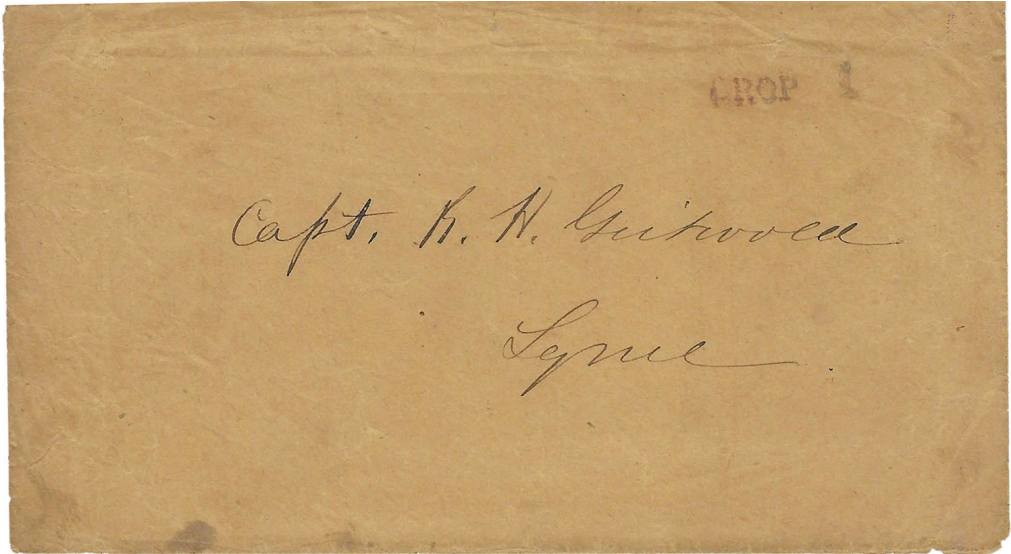 DROP 1
Capt. R. H. Griswold
Lyme